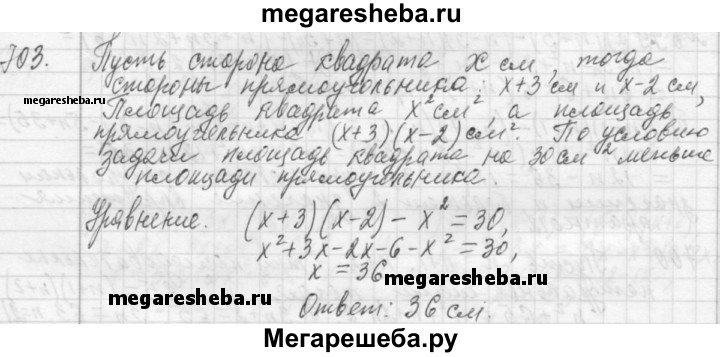 megaresheba.ru
703. Пусть сторона квадрата x см, тогда
стороны прямоугольника: x+3 см и x-2 см,
megaresheba.ru
Площадь квадрата x² см², а площадь
прямоугольника (x+3)(x-2) см². По условию
задачи площадь квадрата на 30 см² меньше
площади прямоугольника.
Уравнение. (x+3)(x-2) - x² = 30,
x²+3x-2x-6-x² = 30,
x = 36
megaresheba.ru
megaresheba.ru
Ответ: 36 см.
Мегарешеба.ру